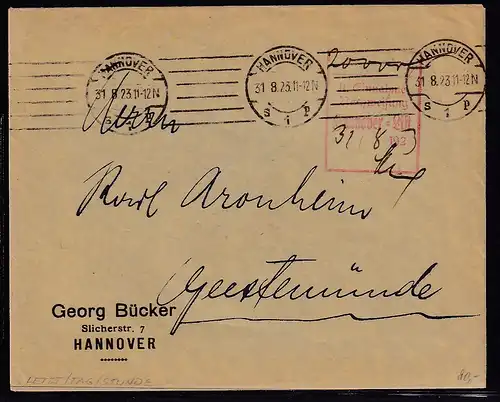 HANNOVER
31.8.23.11-12N
S 1 P
HANNOVER
31.8.23.11-12N
S 1 P
HANNOVER
31.8.23.11-12N
S 1 P
20000
Hannover
192
31/8 3
Herrn
Karl Aronheim
Geestemünde
Georg Bücker
Slicherstr. 7
HANNOVER
LETZT/TAG/STUNDE
80,-